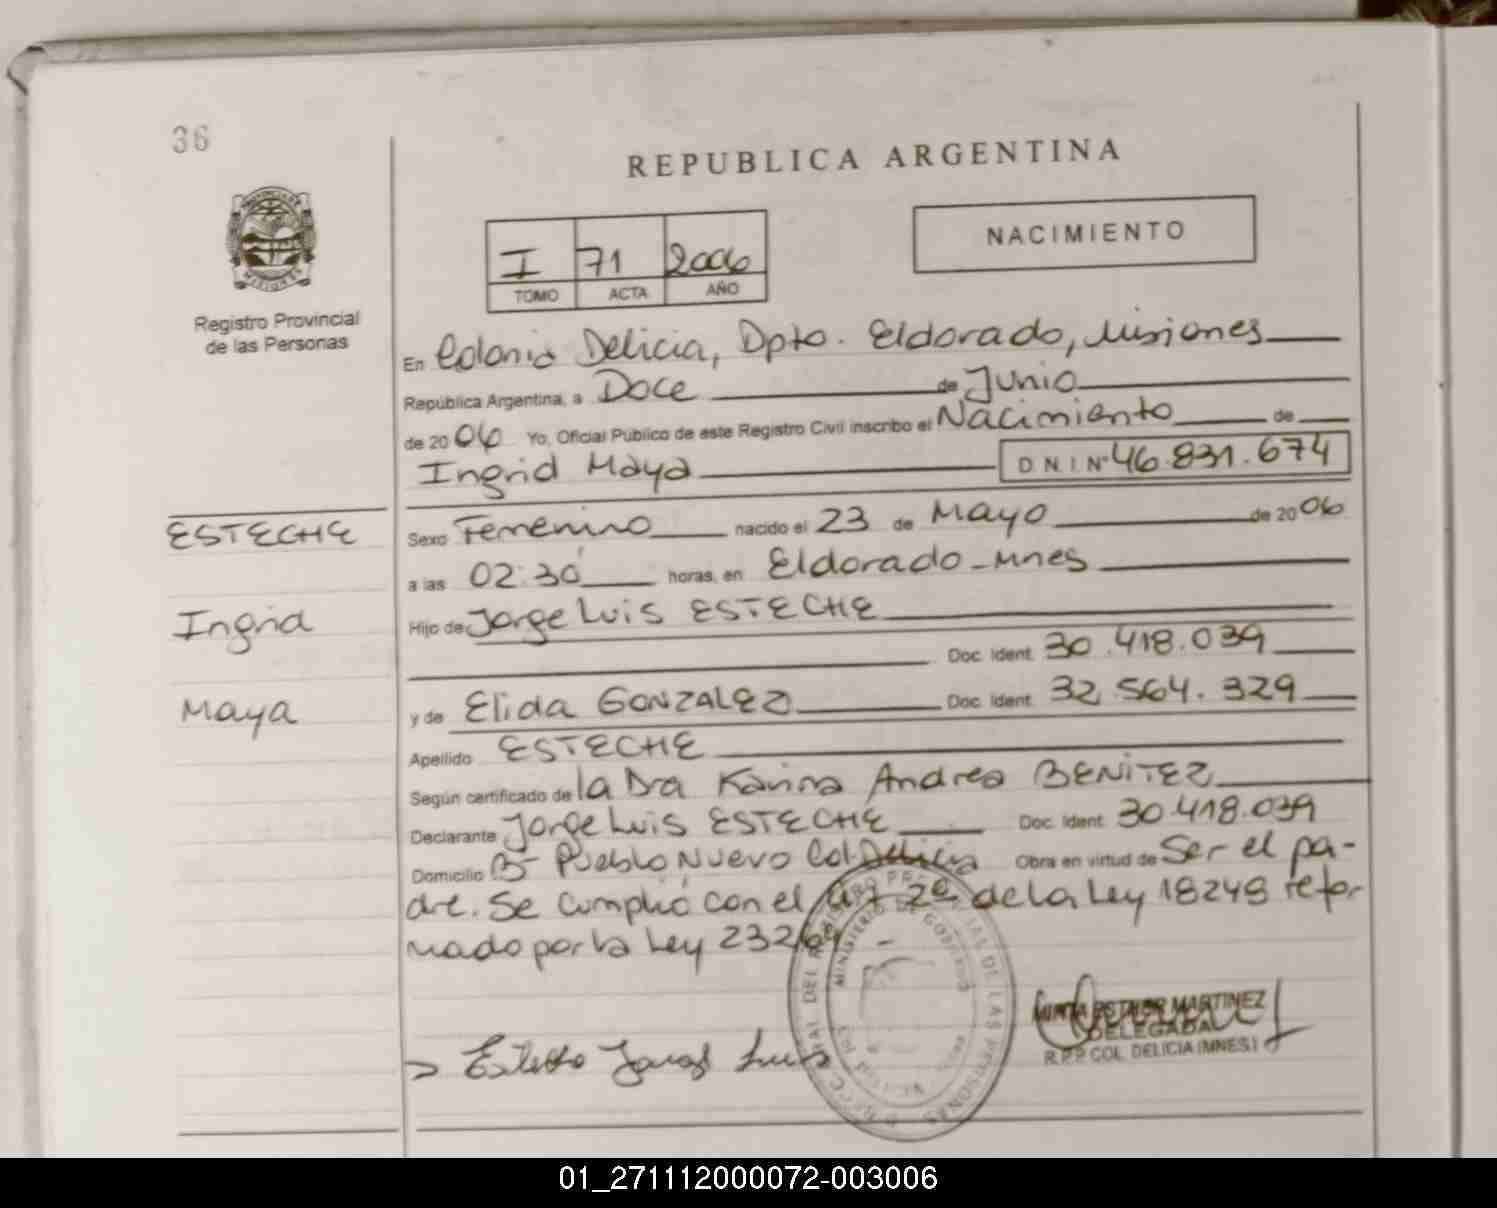 36
REPUBLICA ARGENTINA
NACIMIENTO
I 71 2006
TOMO ACTA AÑO
Registro Provincial
de las Personas
En Colonia Delicia, Dpto. Eldorado, Misiones
República Argentina, a Doce de Junio
de 2006 Yo, Oficial Público de este Registro Civil inscribo el Nacimiento de
Ingrid Maya D.N.I. Nº 46.831.674
ESTECHE
Ingrid
Maya
Sexo Femenino nacido el 23 de Mayo de 2006
a las 02:30 horas, en Eldorado - Mnes
Hijo de Jorge Luis ESTECHE
Doc. Ident. 30.418.039
y de Elida GONZALEZ Doc. Ident. 32.564.329
Apellido ESTECHE
Según certificado de la Dra Karina Andrea BENITEZ
Declarante Jorge Luis ESTECHE Doc. Ident. 30.418.039
Domicilio Bº Pueblo Nuevo Col. Delicia Obra en virtud de Ser el pa-
dre. Se cumplió con el Art 2º de la Ley 18248 refor
mado por la Ley 23264
MARTINEZ
DELEGADA
R.P.P. COL. DELICIA (MNES)
Luis
MINISTERIO DE GOBIERNO
01_271112000072-003006